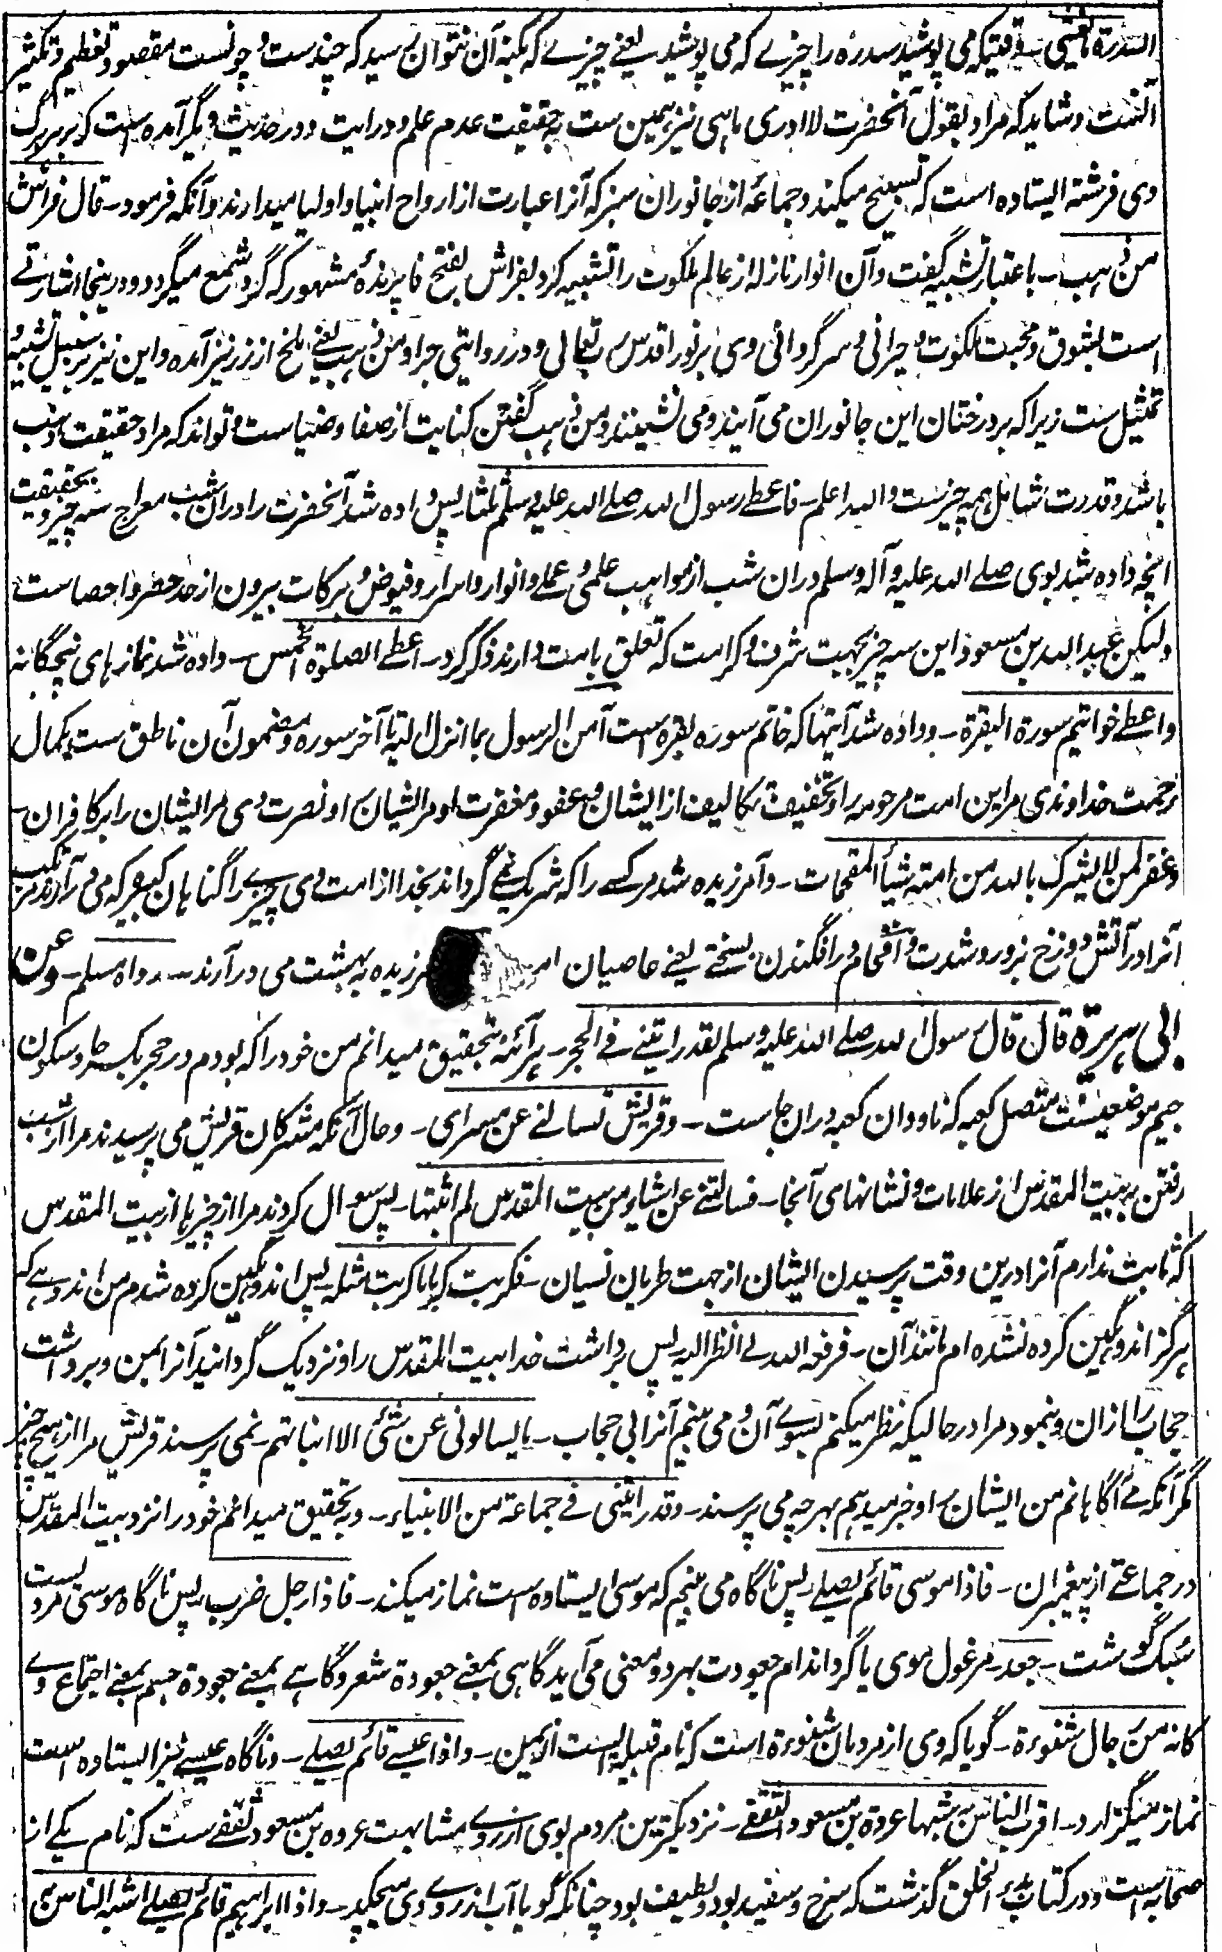 السدرة ما یغشی ـ وقتیکه می پوشید سدره را چیزے که می پوشید یعنے چیزے که بکنه آن نتوان رسید که چندست و چونست مقصود تعظیم و تکثیر
آنست و شاید که مراد بقول آنحضرت لا ادری ما هی نیز همین ست نه حقیقت عدم علم و درایت و در حدیث دیگر آمده است که بر هر برگ
وی فرشته ایستاده است که تسبیح میکند و جماعۀ از جانوران سبز که آنرا عبارت از ارواح انبیا و اولیا میدارند و آنکه فرمود ـ قال فراش
من ذهب ـ باعتبار تشبیه گفت و آن انوار نازله از عالم ملکوت را تشبیه کرد بفراش بفتح فا پرندۀ مشهور که گرد شمع میگردد و درینجا اشارتے
است بشوق و محبت ملکوت و حیرانی و سرگردانی وی بر نور اقدس رب تعالی و در روایتی جراد من ذهب یعنے ملخ از زر نیز آمده و این نیز بر سبیل تشبیه و
تمثیل ست زیراکه بر درختان این جانوران می آیند و می نشینند و من ذهب گفتن کنایت از صفا و ضیاست و تواند که مراد حقیقت ذهب
باشد و قدرت شامل همه چیزست والله اعلم ـ فاعطے رسول الله صلے الله علیه وسلم ثلثا پس داده شد آنحضرت را در آن شب معراج سه چیز و بحقیقت
آنچه داده شد بوی صلے الله علیه وآله وسلم در ان شب از مواهب علمی و عملے و انوار و اسرار و فیوض و برکات بیرون از حد حصر و احصاست
ولیکن عبد الله بن مسعود این سه چیز بجهت شرف و کرامت که تعلق بامت دارند ذکر کرد ـ اعطے الصلوة الخمس ـ داده شد نمازهای پنجگانه
واعطے خواتیم سورة البقرة ـ و داده شد آیتها که خاتم سوره بقره است آمن الرسول بما انزل الیه تا آخر سوره و مضمون آن ناطق ست بکمال
رحمت خداوندی مر این امت مرحومه را و تخفیف تکالیف از ایشان و عفو و مغفرت او مر ایشان را و نصرت وی مر ایشان را بر کافران ـ
وغفر لمن لا یشرک بالله من امته شیأ المقحمات ـ و آمرزیده شد مر کسے را که شریک نمے گرداند بخدا از امت وی چیزے را گناهان کبیره که می در آرند مرتکب
آنرا در آتش دوزخ بزور و شدت و اقحام در افگندن بسختے یعنے عاصیان رزیده به بهشت می در آرند ـ رواه مسلم ـ وعن
ابی هریرة قال قال رسول الله صلے الله علیه وسلم لقد رایتنے فے الحجر ـ هر آئنه بتحقیق میدانم من خود را که بودم در حجر بکسر حا و سکون
جیم موضعیست متصل کعبه که ناودان کعبه دران جاست ـ وقریش تسالنے عن مسرای ـ و حال آنکه مشرکان قریش می پرسیدند مرا از شب
رفتن به بیت المقدس از علامات و نشانهای آنجا ـ فسالتنے عن اشیاء من بیت المقدس لم اثبتها ـ پس سوال کردند مرا از چیزها از بیت المقدس
که ثابت ندارم آنرا درین وقت پرسیدن ایشان از جهت طریان نسیان ـ فکربت کربا ما کربت مثله ـ پس اندوهگین کرده شدم من اندوهے که
هرگز اندوهگین کرده نشده ام مانند آن ـ فرفعه الله لے انظر الیه پس برداشت خدا بیت المقدس را و نزدیک گردانید آنرا بمن و برداشت
حجاب را ازان و نمود مرا در حالیکه نظر میکنم بسوے آن و می بینم آنرا بی حجاب ـ ما یسالونی عن شئی الا انباتهم ـ نمی پرسند قریش مرا از هیچ چیز
مگر آنکه مے آگاهانم من ایشان را و خبر میدهم بهرچه می پرسند ـ وقد رایتنی فے جماعة من الانبیاء ـ و بتحقیق میدانم خود را نزد بیت المقدس
در جماعتے از پیغمبران ـ فاذا موسی قائم یصلے ـ پس ناگاه می بینم که موسی ایستاده است نماز میکند ـ فاذا رجل ضرب پس ناگاه موسی مردیست
سبک گوشت ـ جعد ـ مرغول موی یا گرد اندام جعودت بهر دو معنی می آید گاهی بمعنے جعودة شعر و گاهے بمعنے جعودة جسم بمعنے اجتماع وے
کانه من رجال شنوءة ـ گویا که وی از مردمان شنوءة است که نام قبیله ایست از یمن ـ واذا عیسے قائم یصلے ـ و ناگاه عیسے نیز ایستاده است
نماز میگزارد ـ اقرب الناس به شبها عروة بن مسعود الثقفے ـ نزدیکترین مردم بوی از روے مشابهت عروه بن مسعود ثقفے ست که نام یکے از
صحابه است و در کتاب بدء الخلق گذشت که سرخ و سفید بود و لطیف بود چنانکه گویا آب از روے وی میچکد ـ واذا ابراهیم قائم یصلے اشبه الناس به